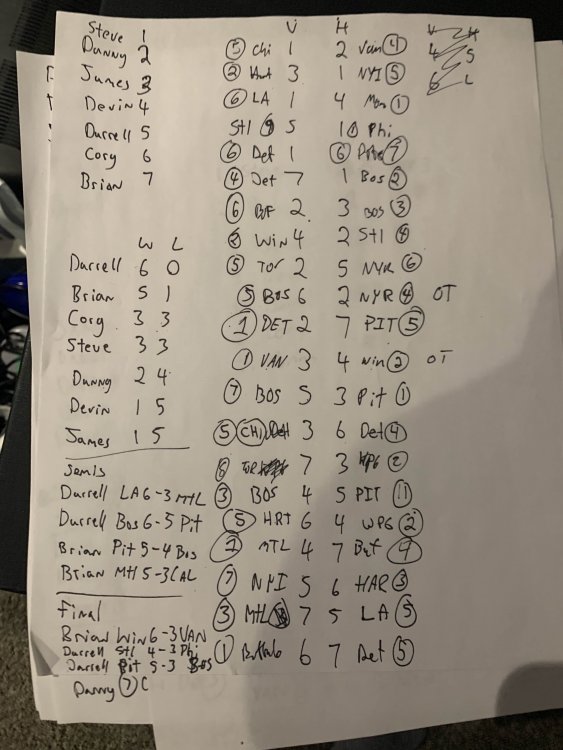 Steve 1
Danny 2
James 3
Devin 4
Darrell 5
Cory 6
Brian 7
W L
Darrell 6 0
Brian 5 1
Cory 3 3
Steve 3 3
Danny 2 4
Devin 1 5
James 1 5
Semis
Darrell LA 6-3 MTL
Darrell Bos 6-5 Pit
Brian Pit 5-4 Bos
Brian Mtl 5-3 CAL
Final
Brian Win 6-3 VAN
Darrell Stl 4-3 Phi
Darrell Pit 5-3 BOS
Danny 7 C
V H
5 Chi 1 2 Van 4
2 3 1 NYI 5
6 LA 1 4 Mon 1
Stl 5 1 Phi
6 Det 1 6 7
4 Det 7 1 Bos 2
6 BUF 2 3 BOS 3
Win 4 2 Stl 4
5 Tor 2 5 NYR 6
5 BOS 6 2 NYR 4 OT
1 DET 2 7 PIT 5
1 VAN 3 4 Win 2 OT
7 BOS 5 3 Pit 1
5 CHI 3 6 Det 4
6 TOR 7 3 WPG 2
3 BOS 4 5 PIT 1
5 HRT 6 4 WPG 2
MTL 4 7 Buf 4
7 NYI 5 6 HAR 3
3 MTL 7 5 LA 5
1 Buffalo 6 7 Det 5
V H
4 5
6 L